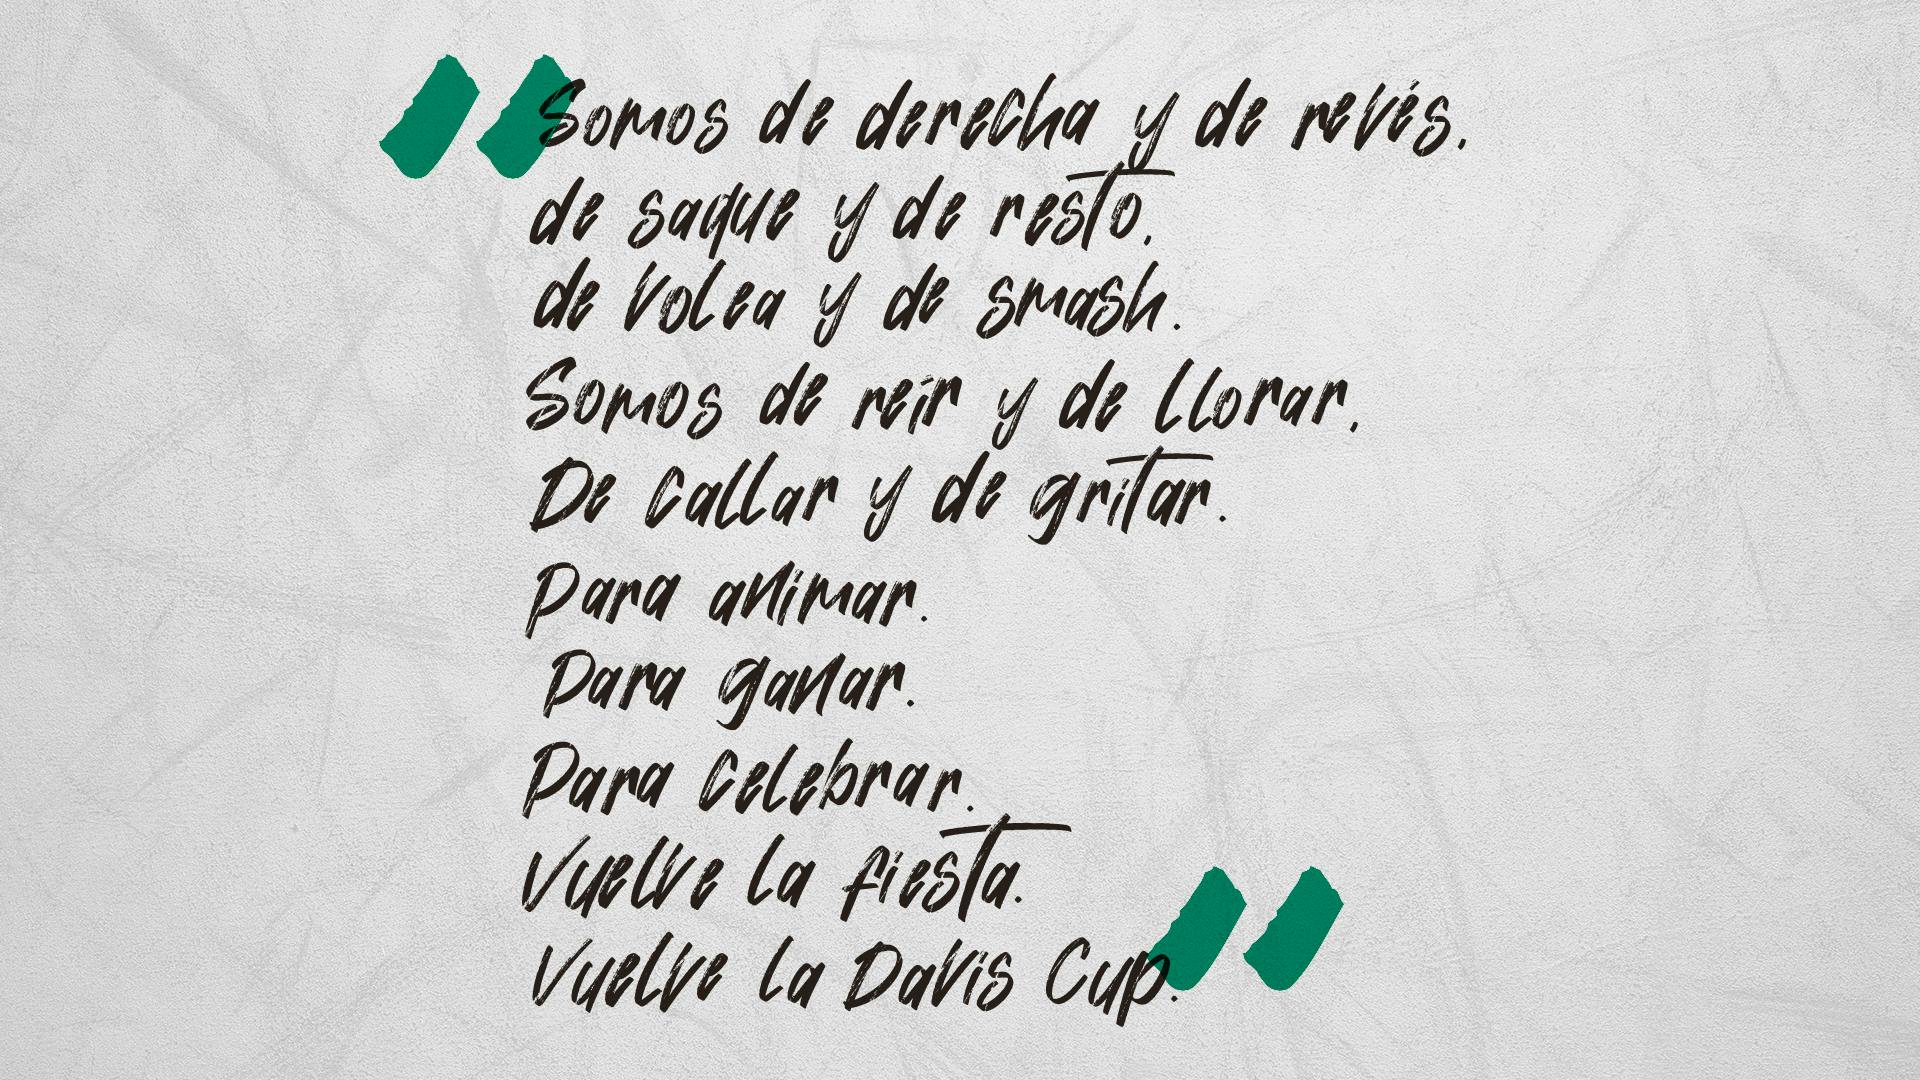 Somos de derecha y de revés,
de saque y de resto,
de volea y de smash.
Somos de reír y de llorar,
De callar y de gritar.
Para animar.
Para ganar.
Para celebrar.
Vuelve la fiesta.
Vuelve la Davis Cup.